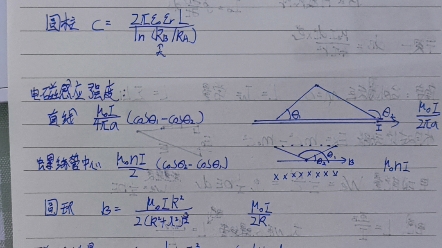 圆柱 C = 2πε₀εᵣL / ln(R_B/R_A)
电磁感应强度:
直线 μ₀I/4πa (cosθ₁-cosθ₂) θ₁ θ₂ I μ₀I/2πa
螺线管中心 μ₀nI/2 (cosθ₂-cosθ₁) θ₂ θ₁ B μ₀nI
x x x x x x x x
圆环 B = μ₀IR²/2(R²+x²)^(3/2) μ₀I/2R